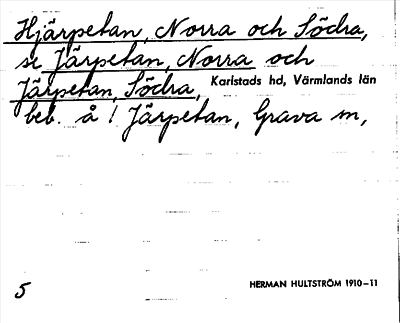 Hjärpetan, Norra och Södra,
se Järpetan, Norra och
Järpetan, Södra, Karlstads hd, Värmlands län
beb. å ! Järpetan, Grava sn,
5 HERMAN HULTSTRÖM 1910-11